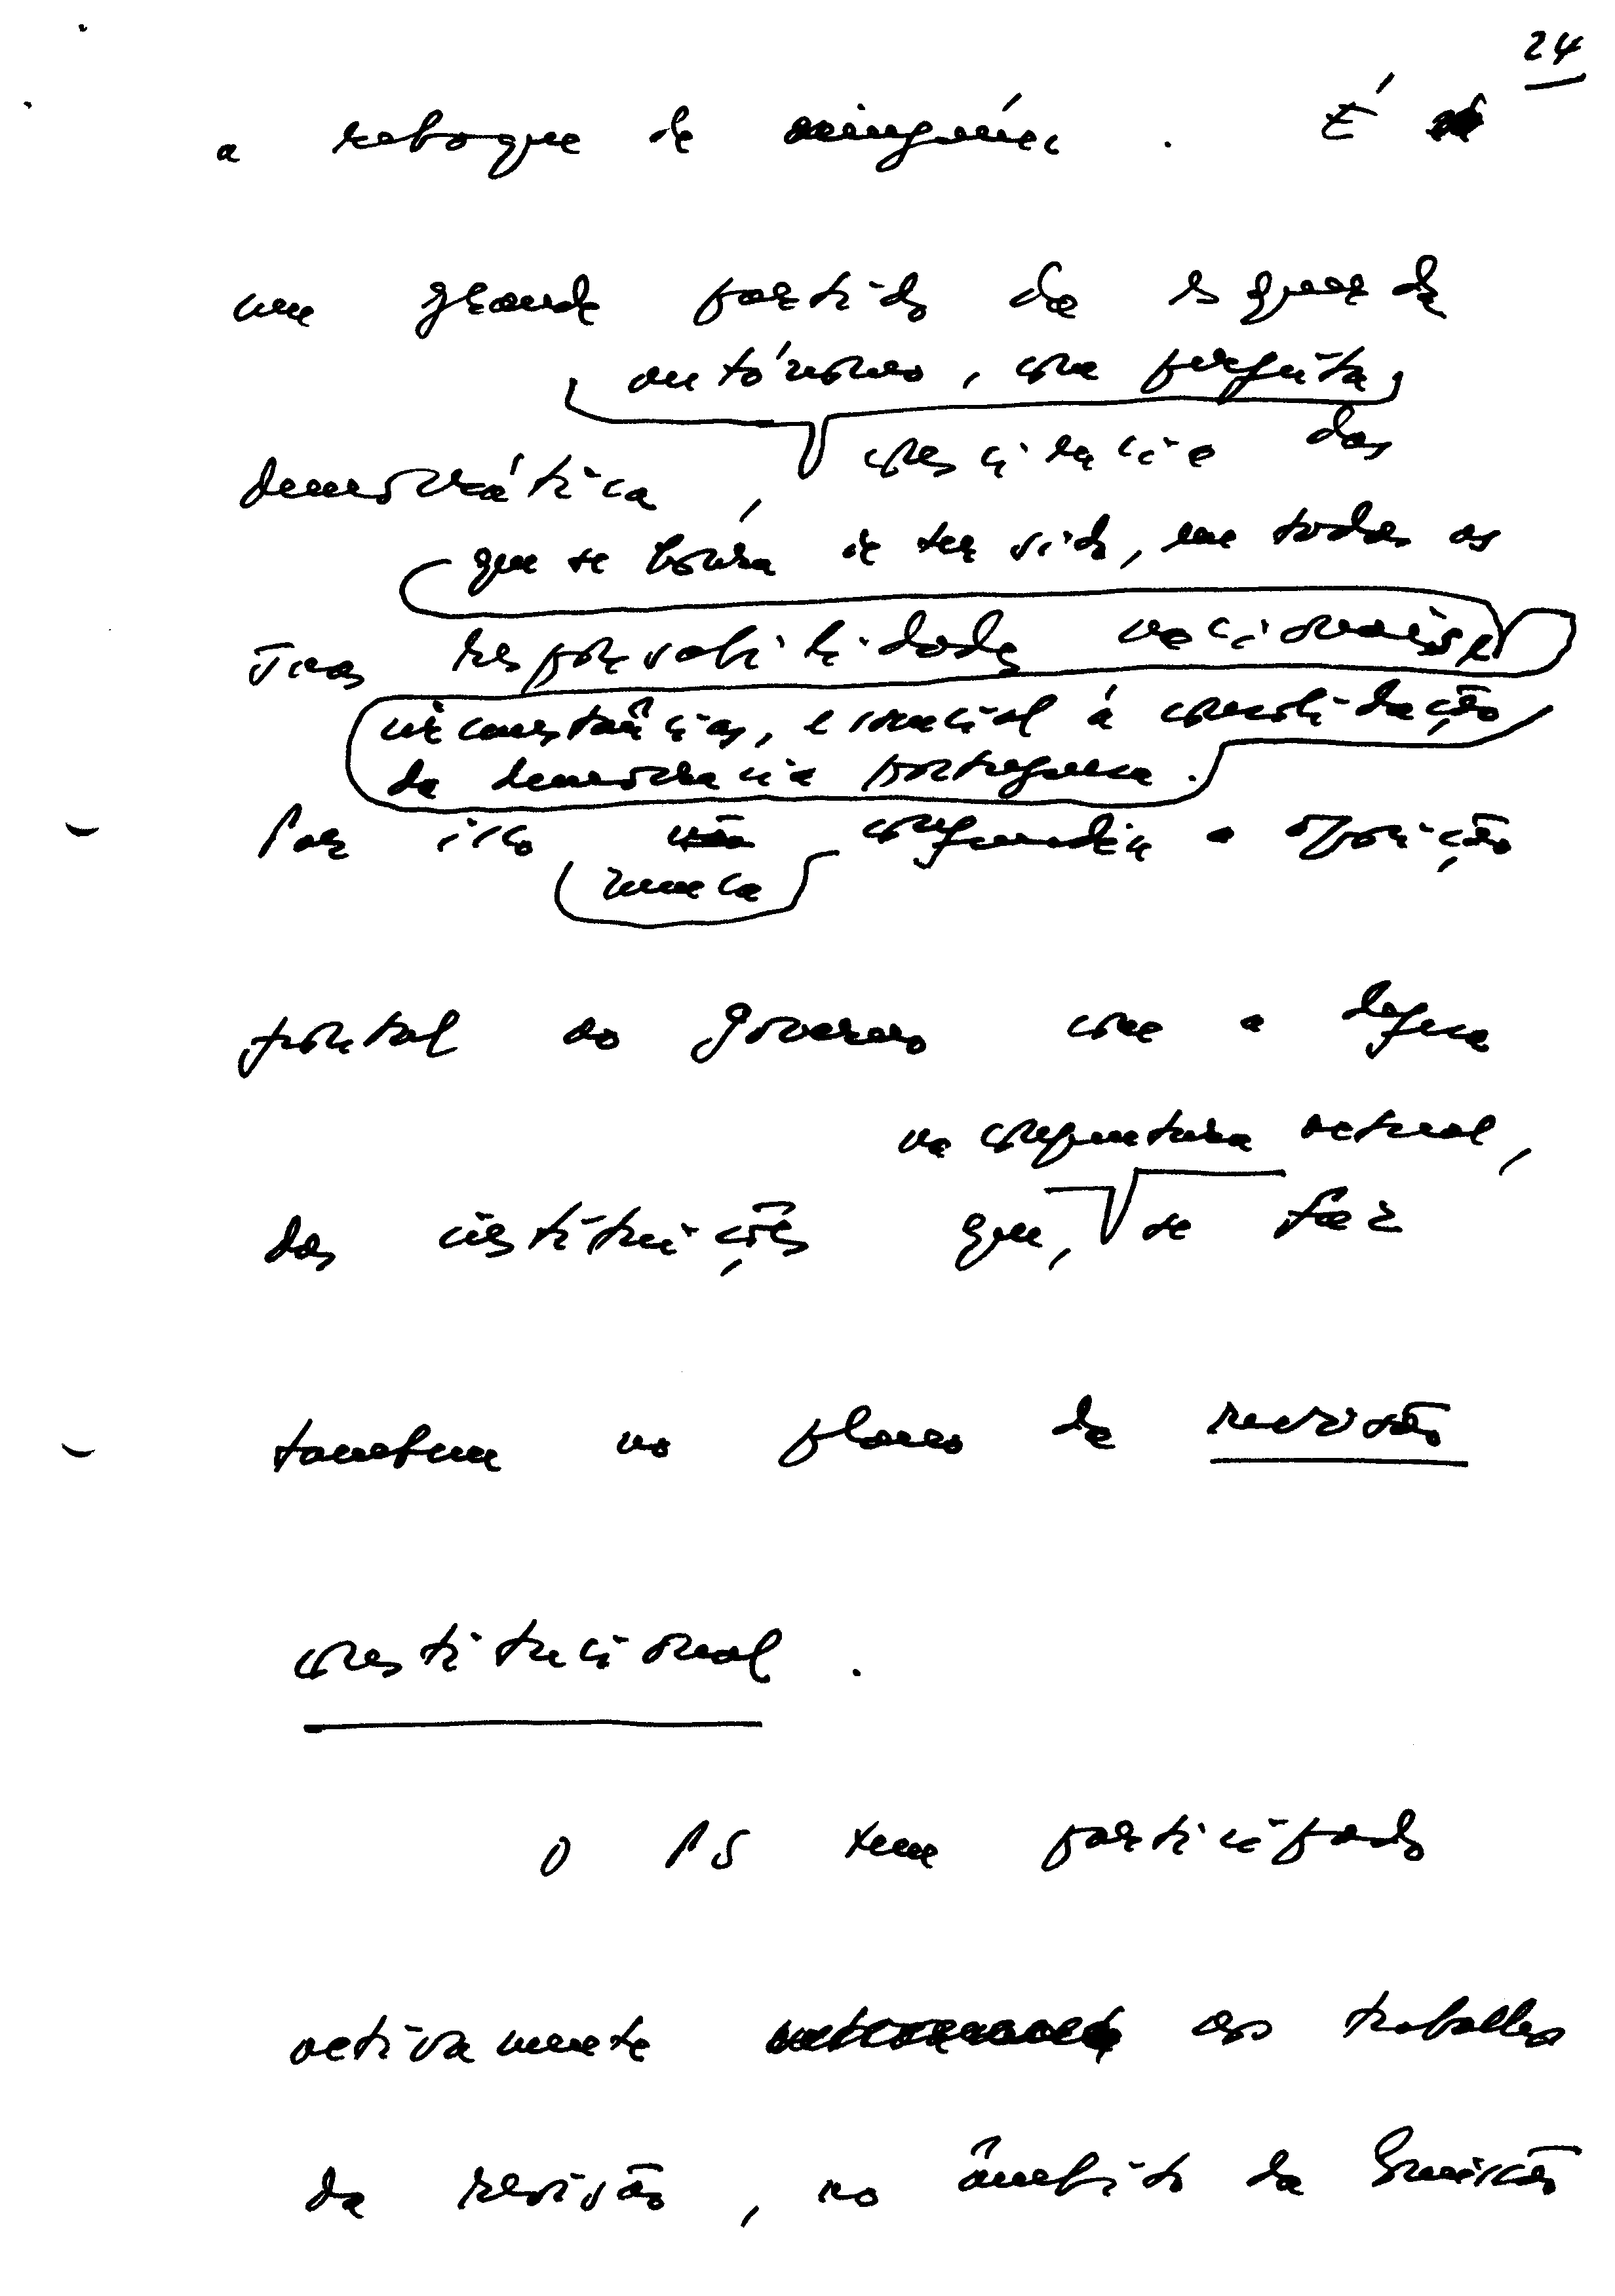 24
a reboque de ninguém. É
um grande partido da esquerda
autónomo, com perfeita
democrática, consciência das
que se honra de ter sido, em todas as
suas responsabilidades nacionais e
circunstâncias, essencial à consolidação
da democracia portuguesa.
Por isso não confundiu a oposição
nunca
frontal ao governo com a defesa
na conjuntura actual,
das instituições que, se faz
também no plano da revisão
constitucional.
O PS tem participado
activamente nos trabalhos
da revisão, no âmbito da Comissão